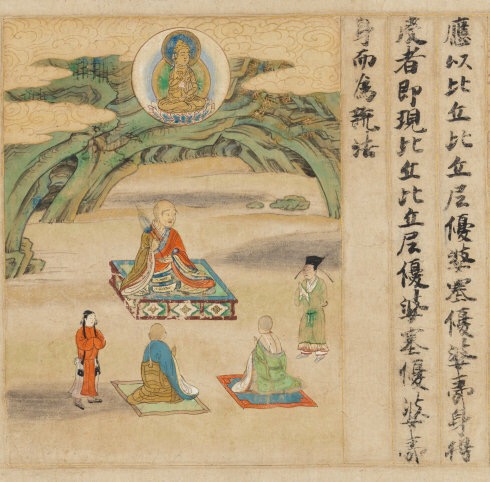 應以比丘比丘尼優婆塞優婆夷身得
度者即現比丘比丘尼優婆塞優婆夷
身而為說法